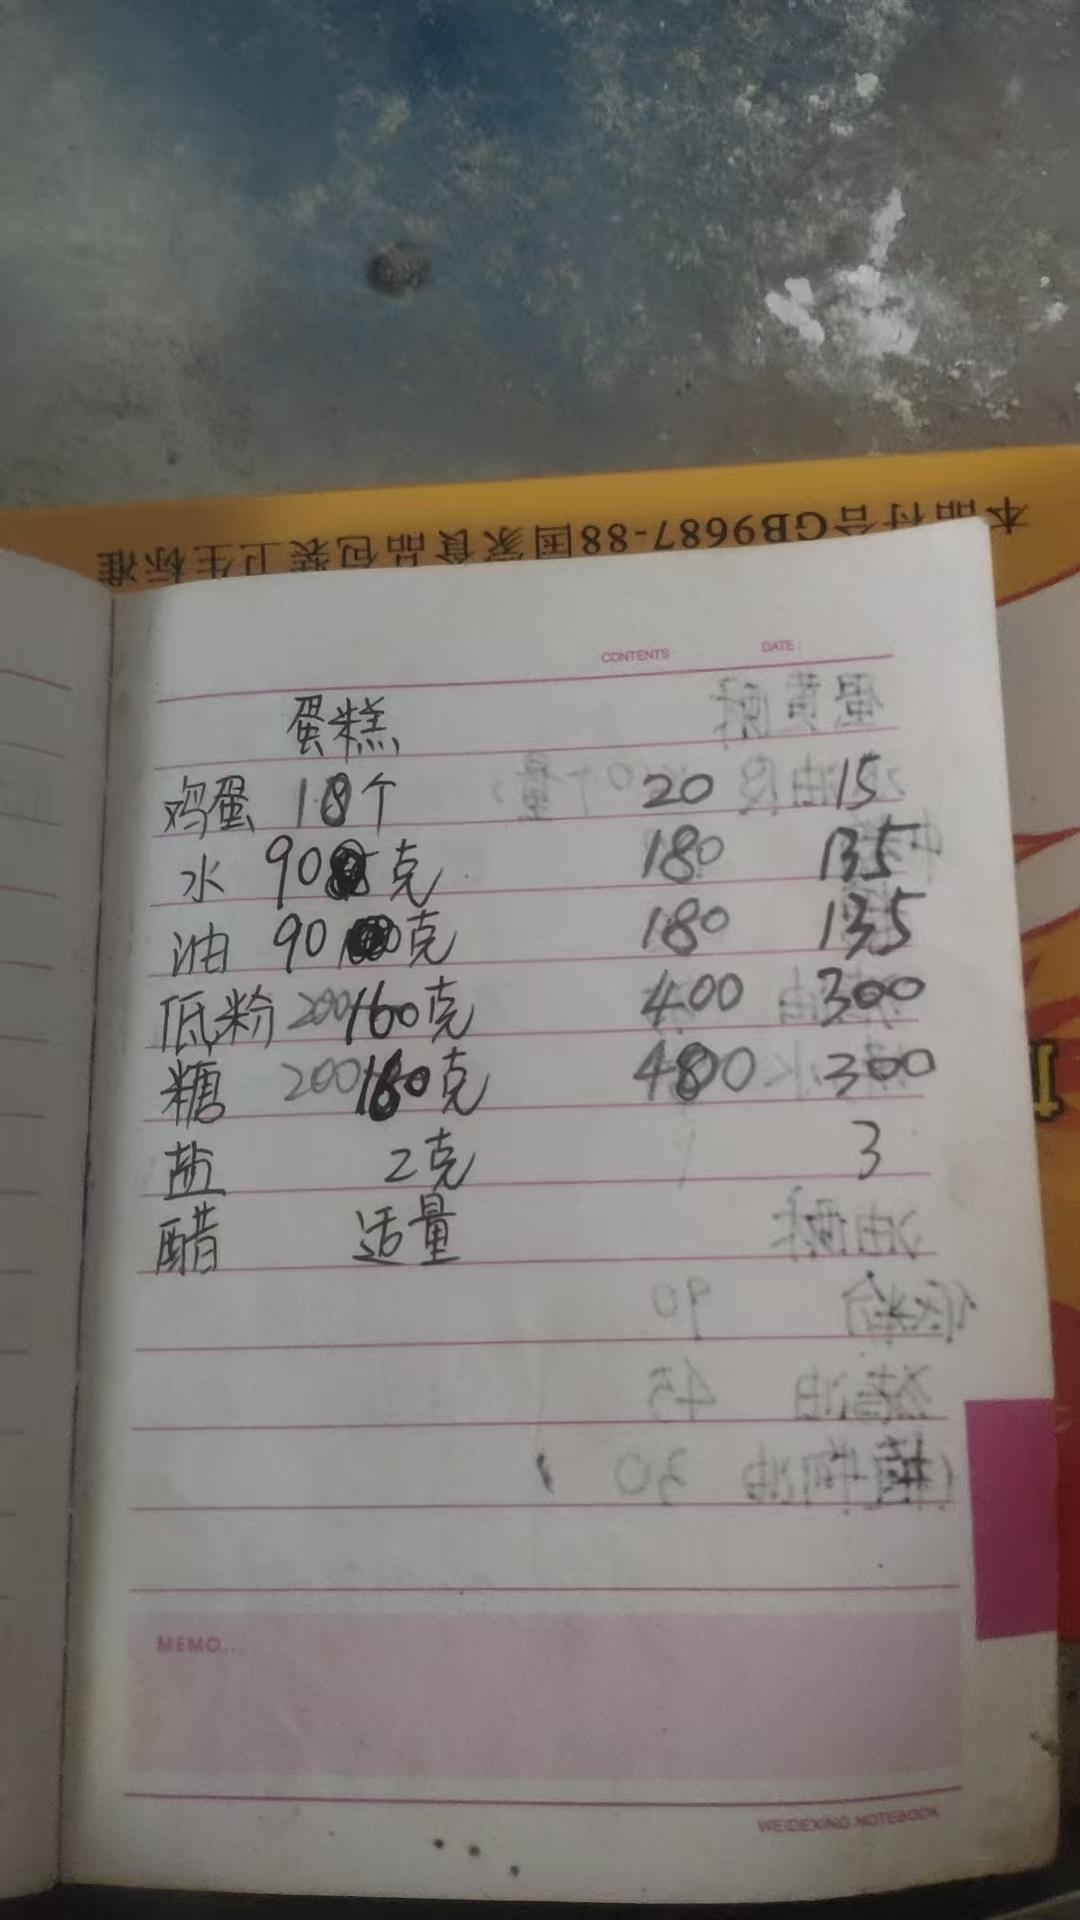 本品符合GB9687-88国家食品包装卫生标准
CONTENTS DATE:
蛋糕
鸡蛋 18个 20 15
水 90 克 180 135
油 90 克 180 135
低粉 200 160克 400 300
糖 200 180克 480 300
盐 2克 3
醋 适量
MEMO...
WEIDEXING NOTEBOOK